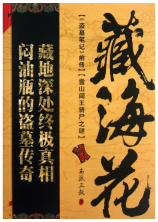 藏海花
《盗墓笔记》前传
【雪山阎王骑尸之谜】
南派三叔
藏地深处终极真相
闷油瓶的盗墓传奇